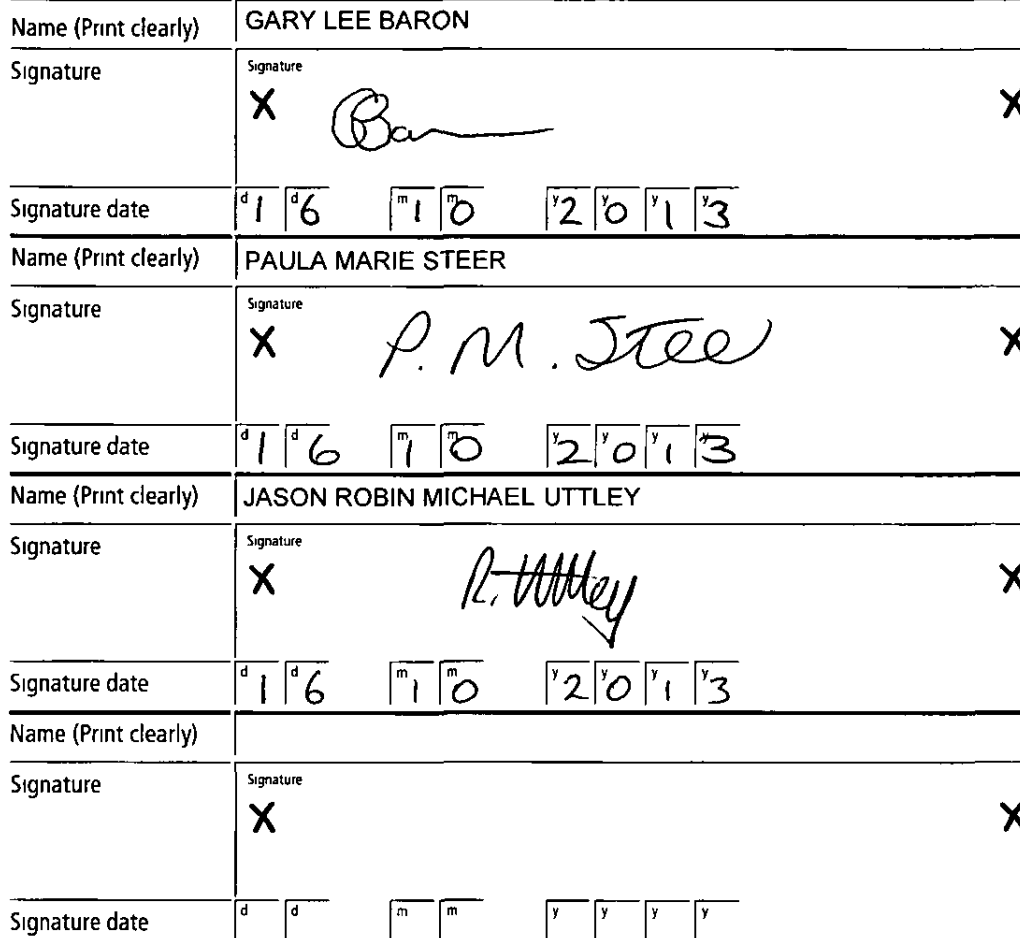 Name (Print clearly) GARY LEE BARON
Signature Signature
X Bar X
Signature date d1 d6 m1 m0 y2 y0 y1 y3
Name (Print clearly) PAULA MARIE STEER
Signature Signature
X P. M. Stee X
Signature date d1 d6 m1 m0 y2 y0 y1 y3
Name (Print clearly) JASON ROBIN MICHAEL UTTLEY
Signature Signature
X R. Uttley X
Signature date d1 d6 m1 m0 y2 y0 y1 y3
Name (Print clearly)
Signature Signature
X X
Signature date d d m m y y y y